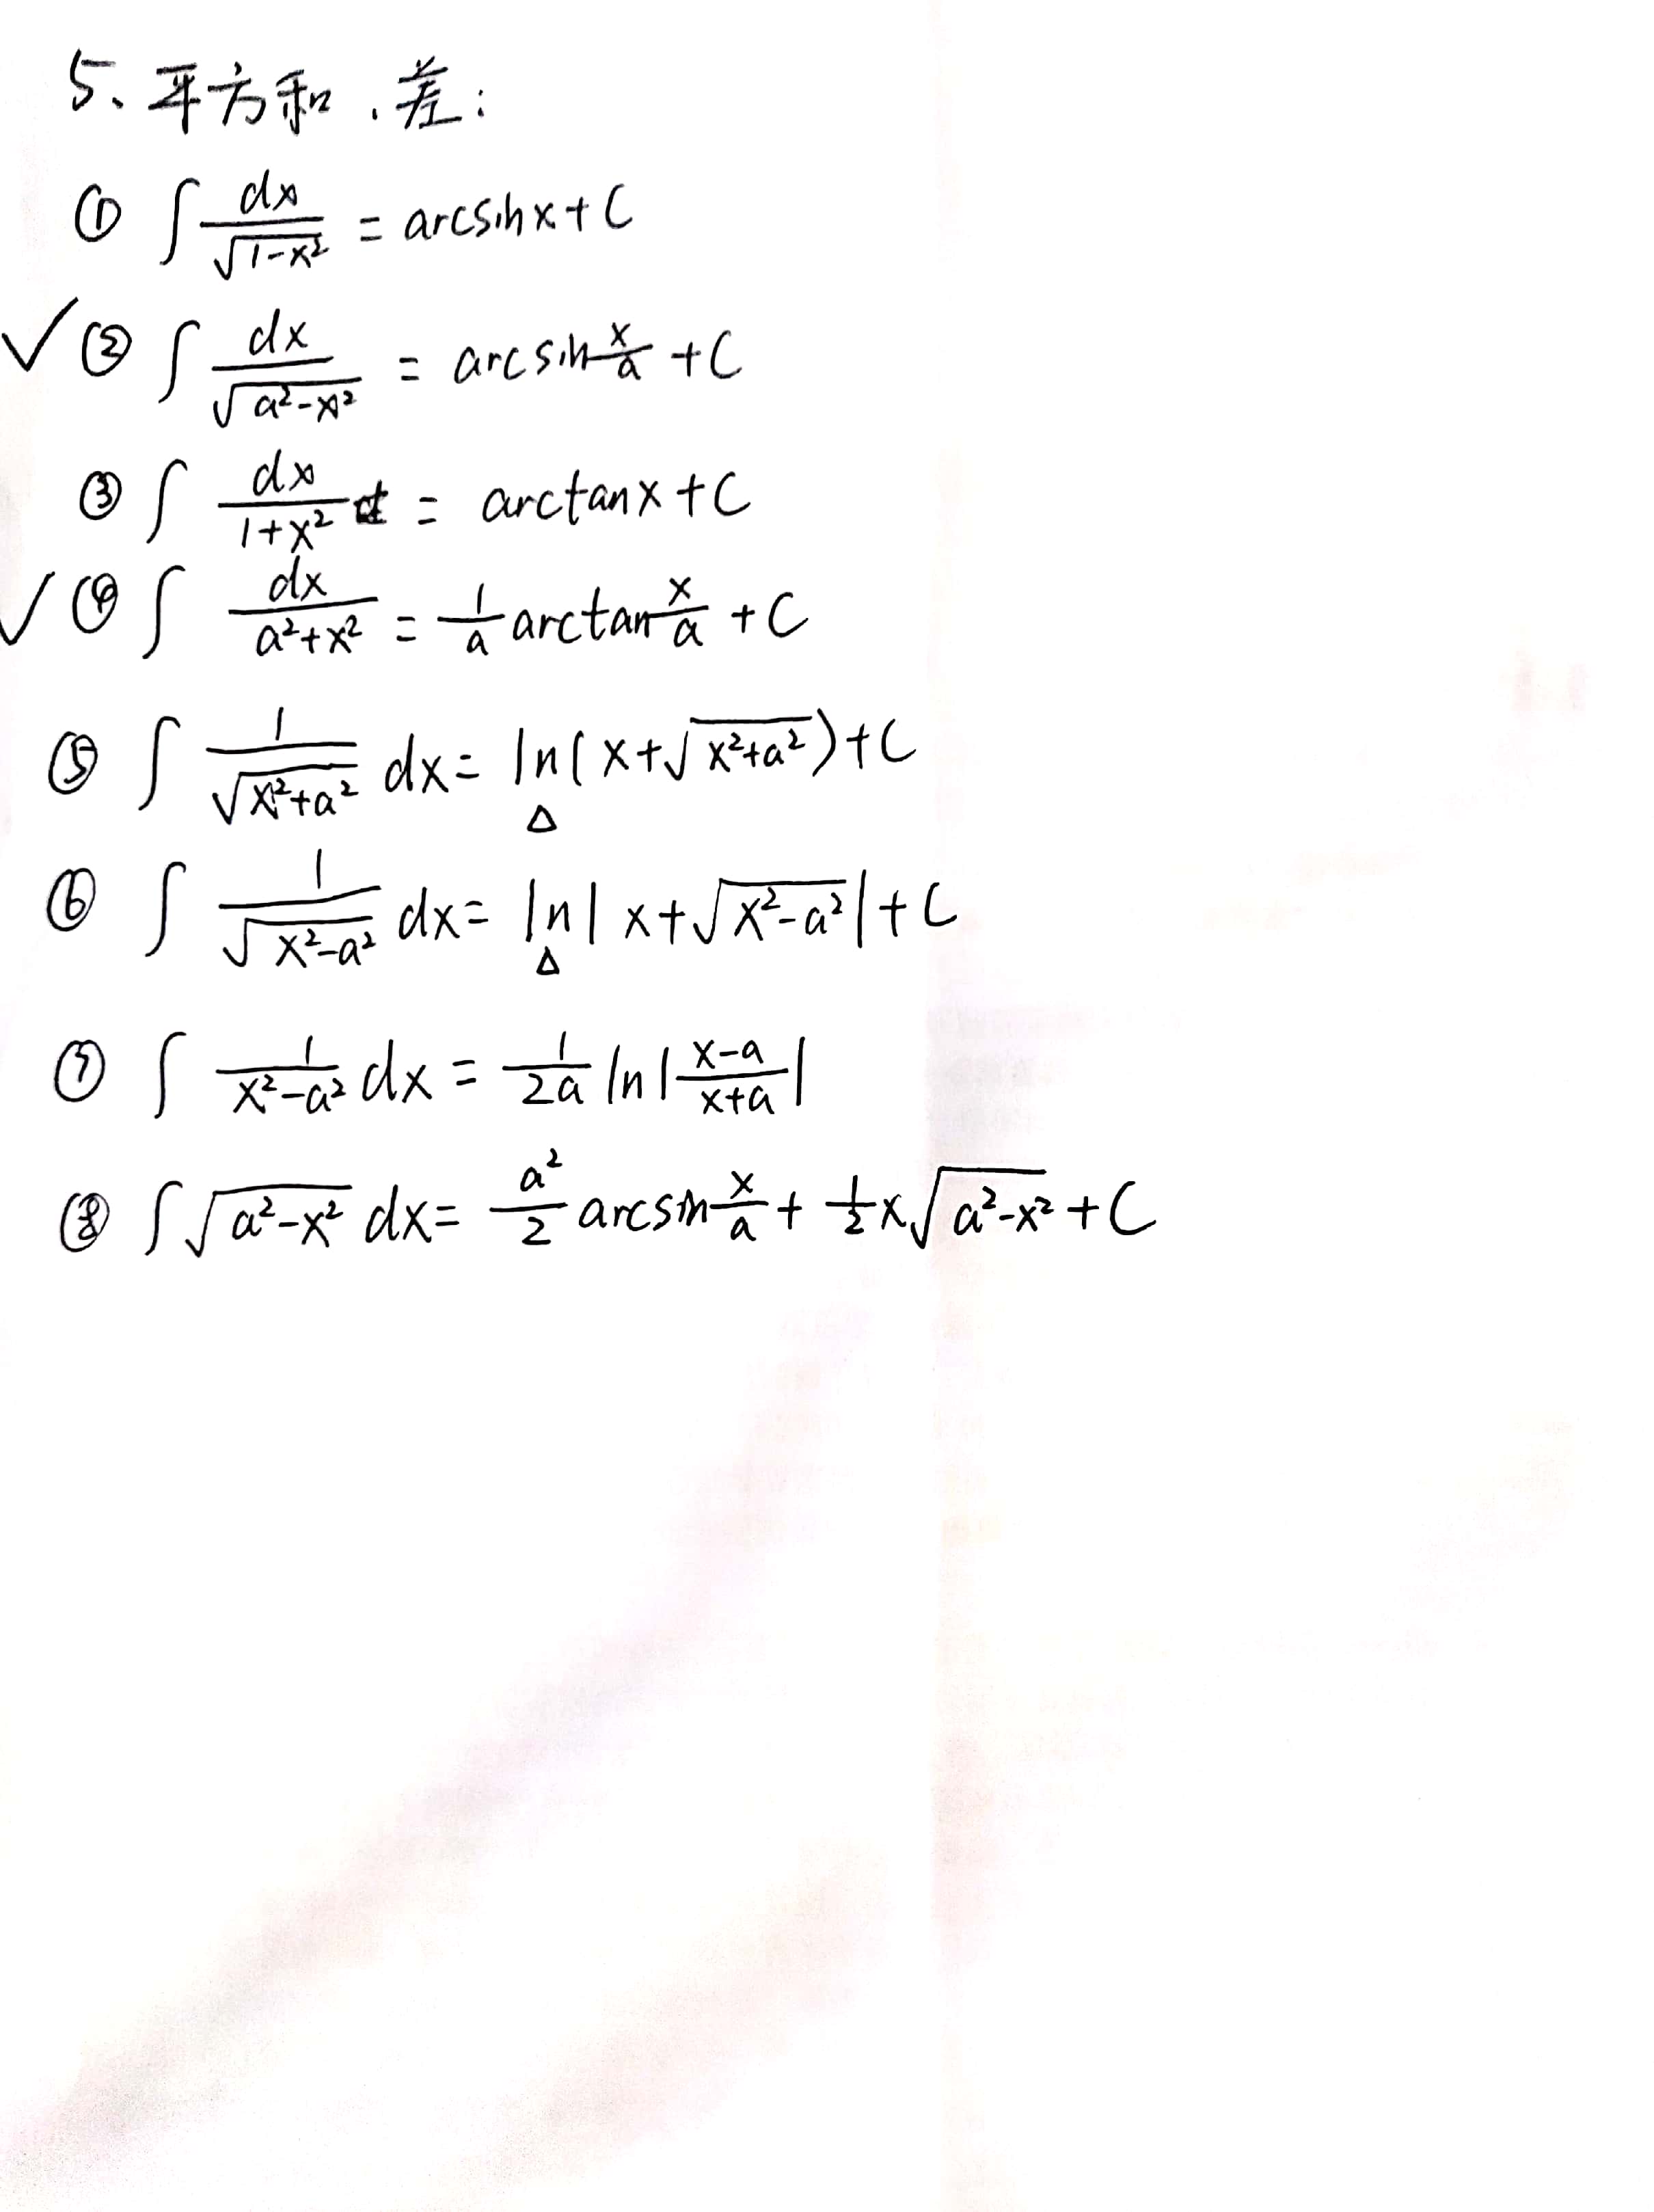 5、平方和、差:
① ∫ dx/√(1-x²) = arcsinx+C
✓ ② ∫ dx/√(a²-x²) = arcsin x/a +C
③ ∫ dx/(1+x²) = arctanx+C
✓ ④ ∫ dx/(a²+x²) = 1/a arctan x/a +C
⑤ ∫ 1/√(x²+a²) dx= ln(x+√(x²+a²))+C
△
⑥ ∫ 1/√(x²-a²) dx= ln|x+√(x²-a²)|+C
△
⑦ ∫ 1/(x²-a²) dx = 1/2a ln|(x-a)/(x+a)|
⑧ ∫√(a²-x²) dx= a²/2 arcsin x/a + 1/2 x√(a²-x²) +C